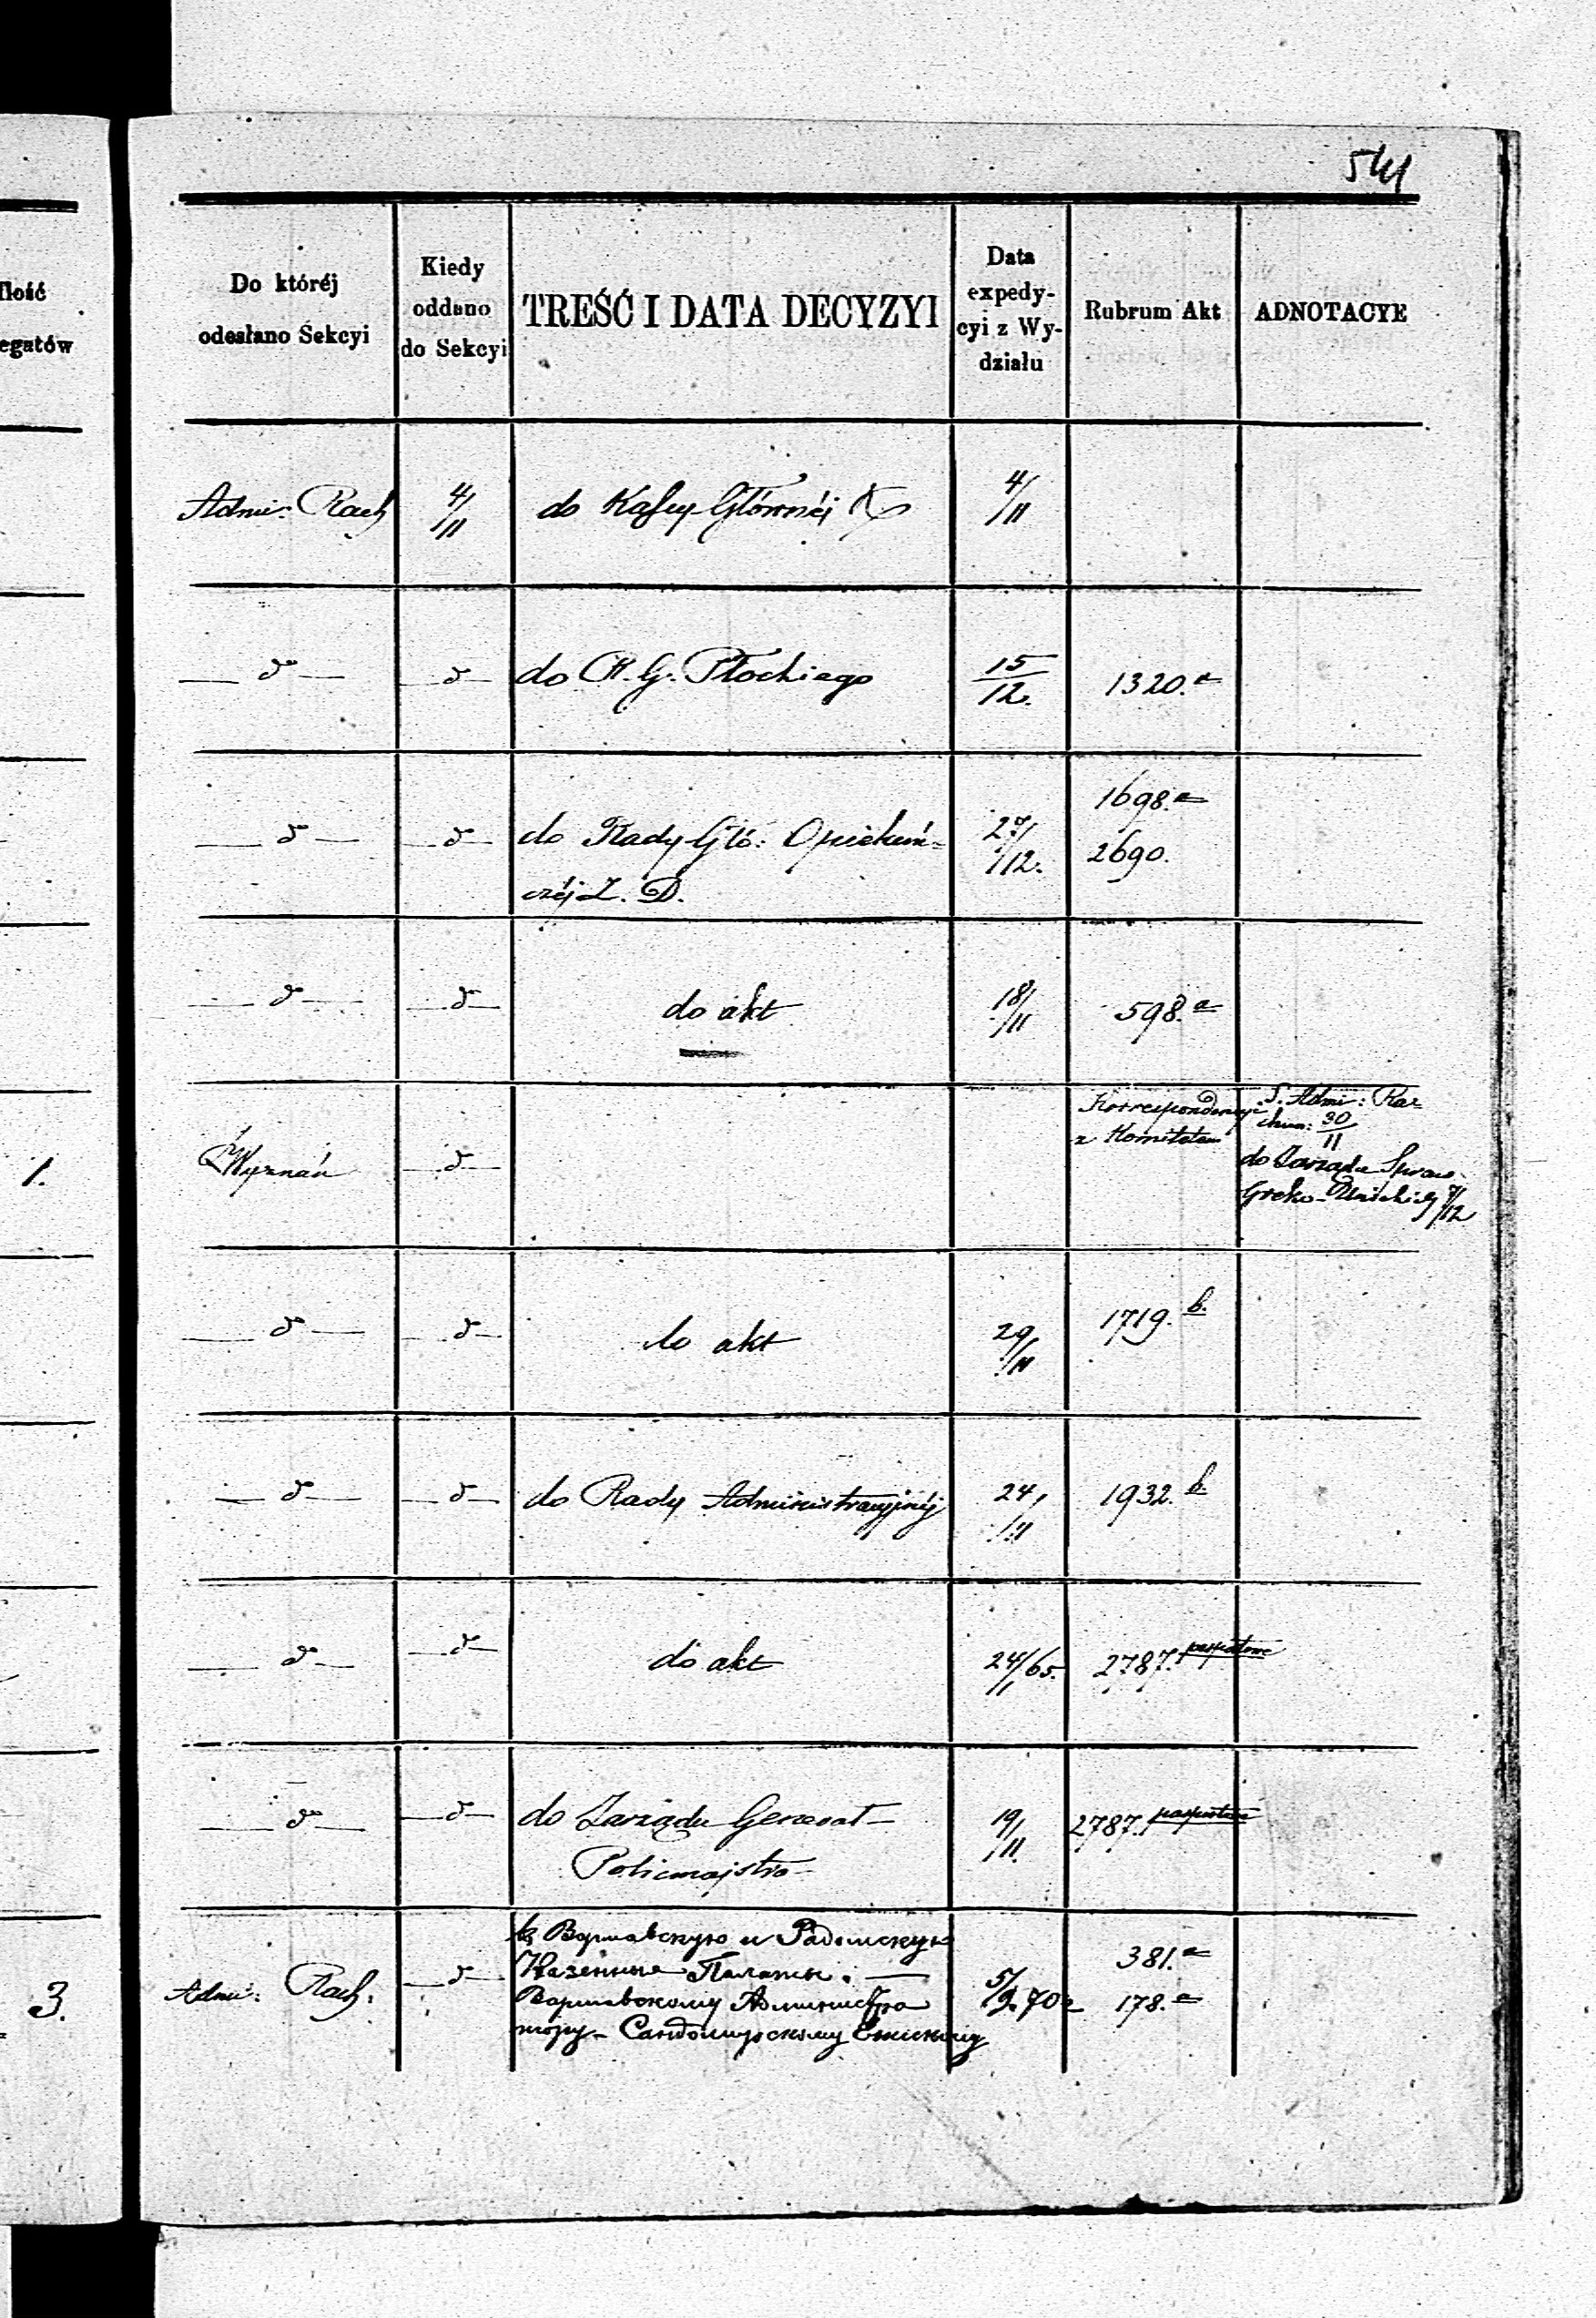 541
Ilość
egatów
Do któréj
odesłano Sekcyi
Kiedy
oddano
do Sekcyi
TREŚĆ I DATA DECYZYI
Data
expedy-
cyi z Wy-
działu
Rubrum Akt
ADNOTACYE
Admi: Rach
4/11
do Kassy Głównéj
4/11
— d° —
— d° —
do R. G. Płockiego
15/12.
1320. a
— d° —
— d° —
do Rady Głó: Opiekuń=
czéj Z. D.
27/12.
1698. a
2690.
— d° —
— d° —
do akt
18/11
598. a
1.
Wyznań
— d° —
Korrespondencye
z Komitetem
S. Admi: Ra=
chun: 30/11
do Zarządu Spraw
Greko-Unickich 7/12
— d° —
— d° —
do akt
29/11
1719. b.
— d° —
— d° —
do Rady Administracyjnéj
24/11
1932. b.
— d° —
— d° —
do akt
24/1 65.
2787. paszportowe
— d° —
— d° —
do Zarządu Generał-
Policmajstra
19/11.
2787. paszportowe
3.
Admi: Rach:
— d° —
въ Варшавскую и Радомскую
Казенные Палаты. —
Варшавскому Администра
тору — Сандомирскому Епископу
5/9 70
381. a
178. a